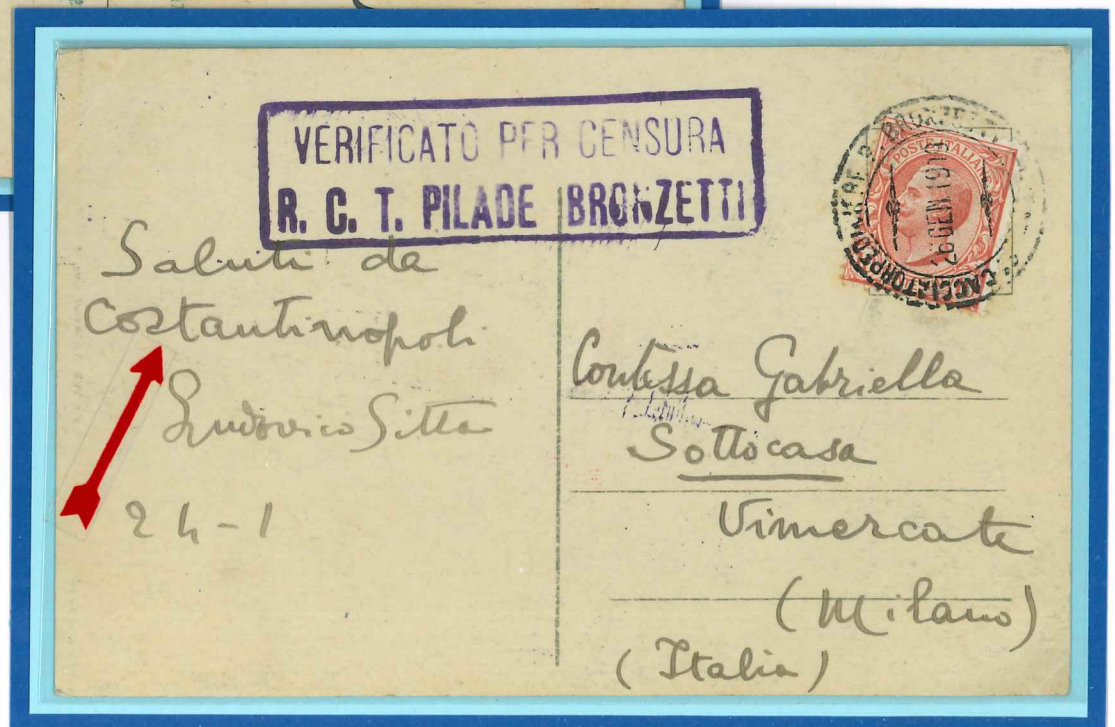 VERIFICATO PER CENSURA
R. C. T. PILADE BRONZETTI
POSTE ITALIANE
CACCIATORPEDINIERE P. BRONZETTI
26 GEN 19
Saluti da
Costantinopoli
Ludovico Sitta
24-1
Contessa Gabriella
Sottocasa
Vimercate
(Milano)
(Italia)